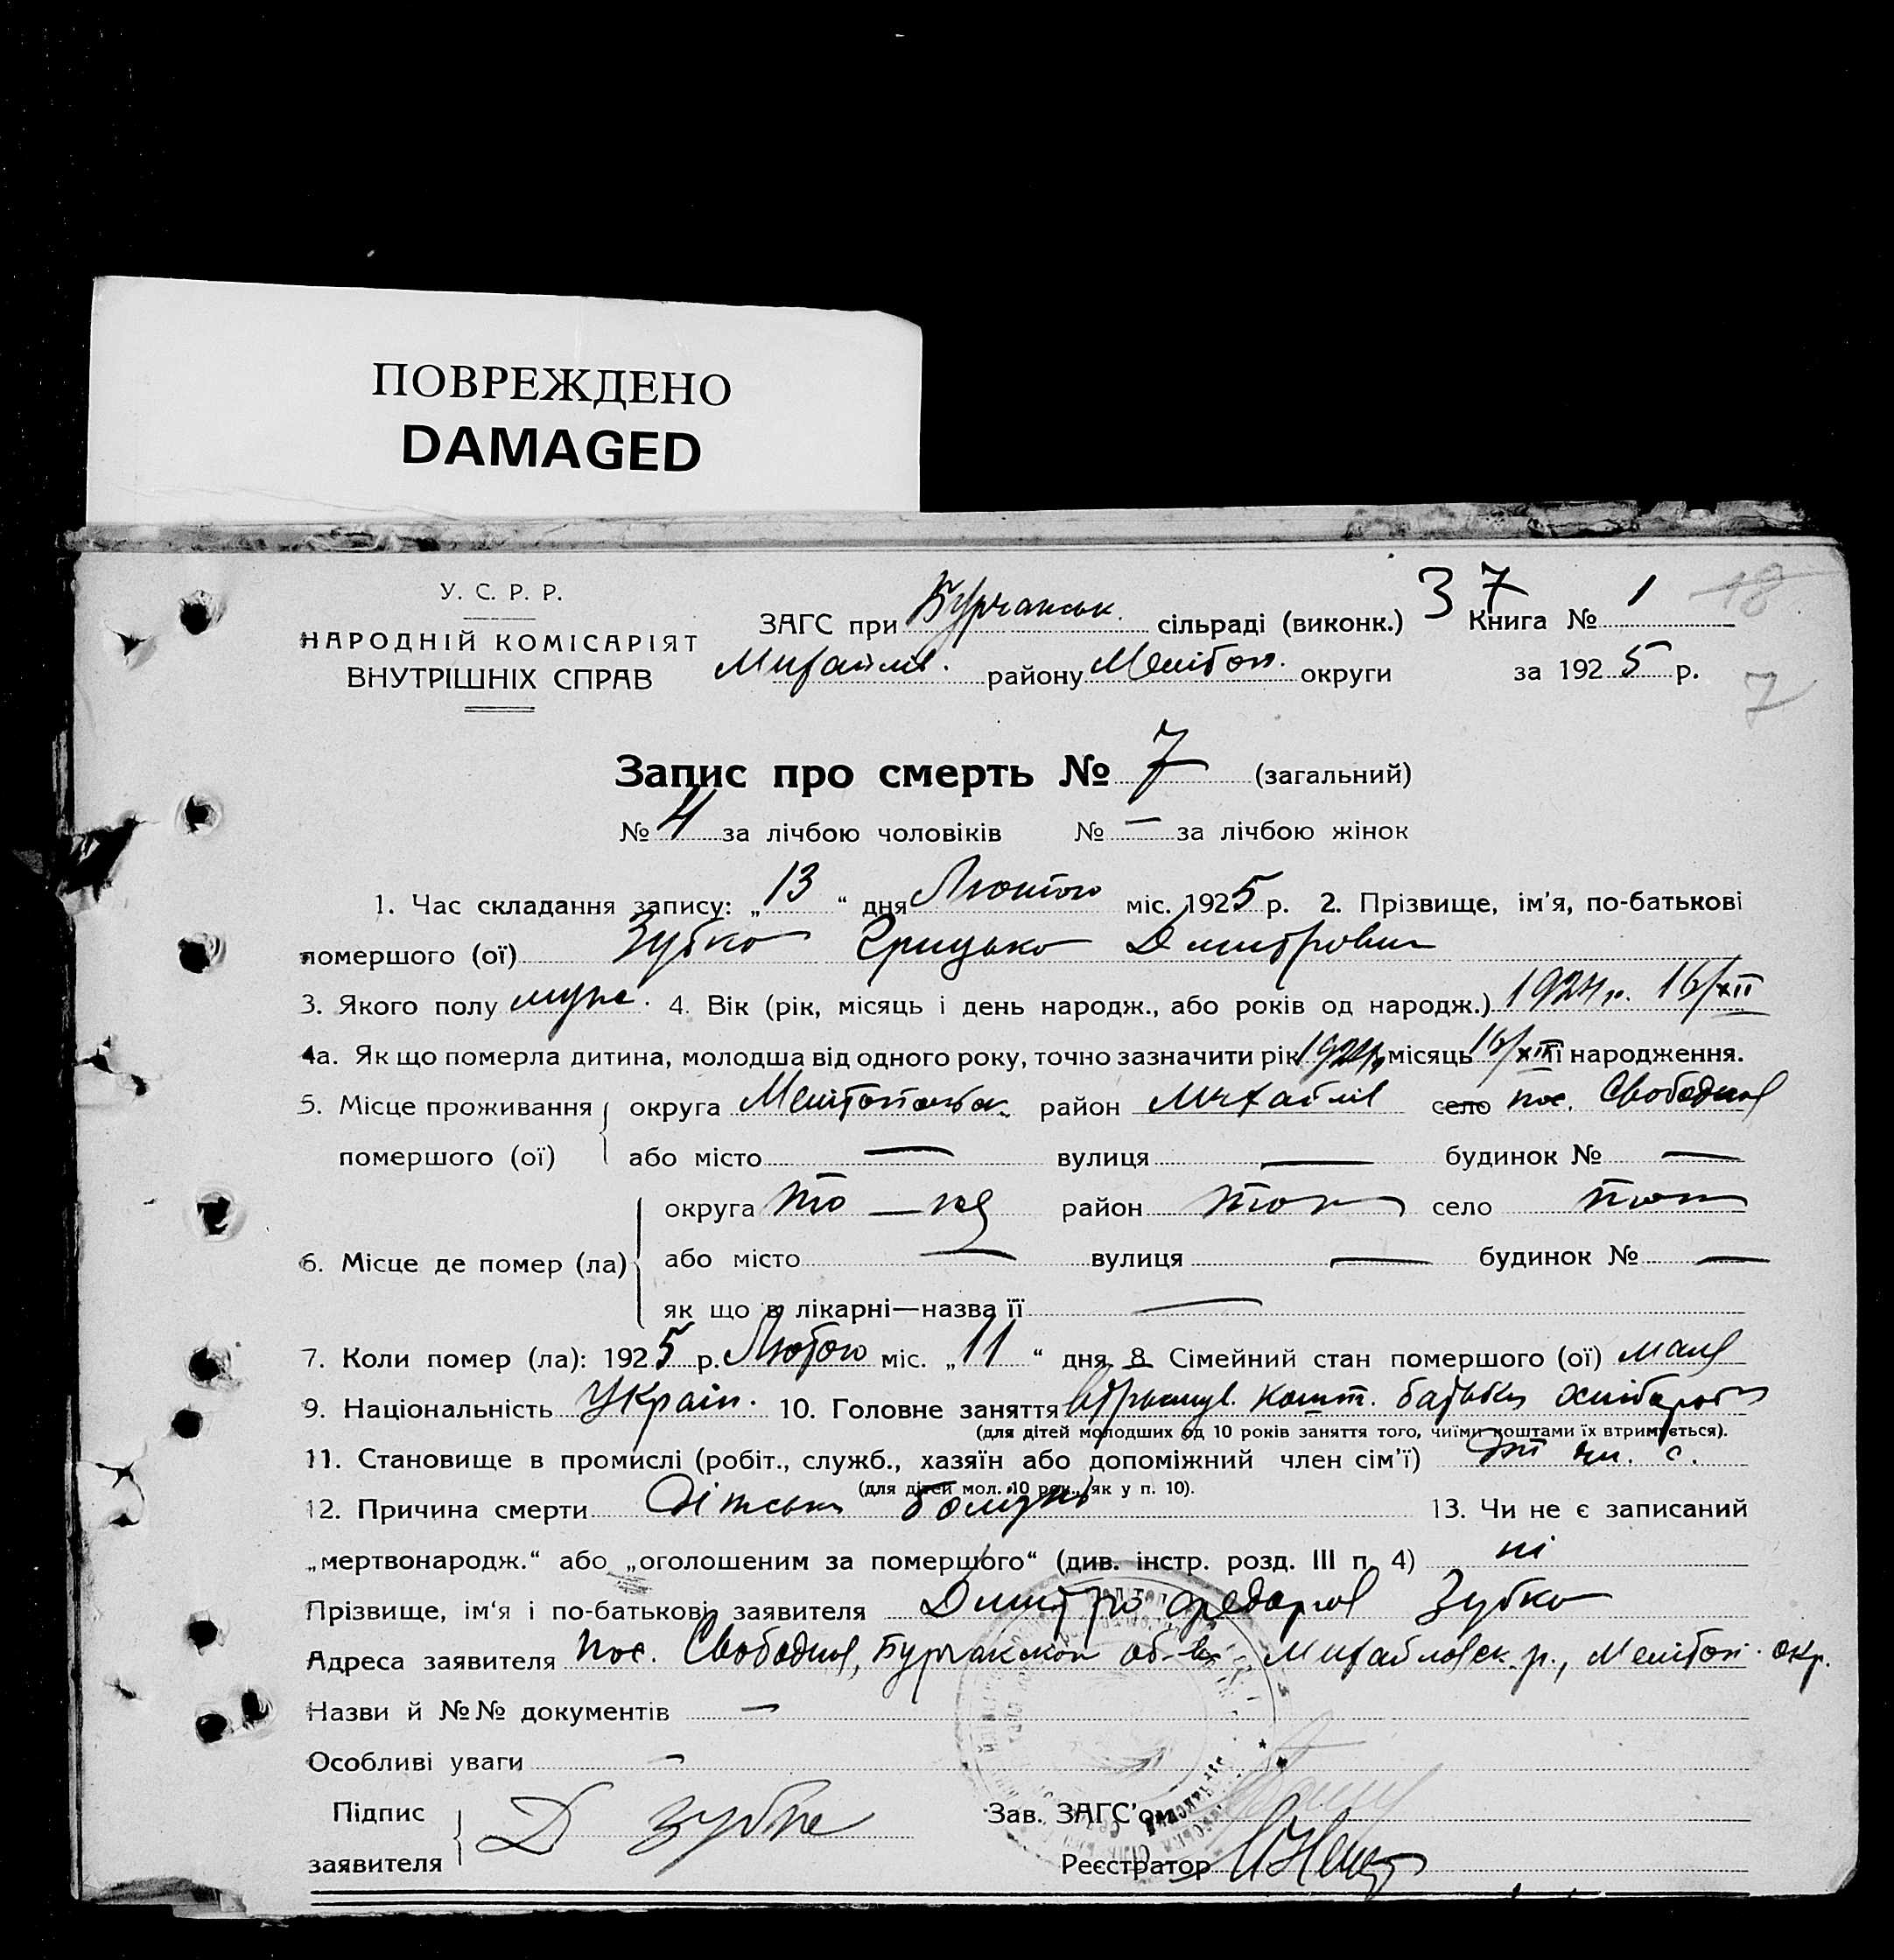 ПОВРЕЖДЕНО
DAMAGED
У. С. Р. Р.
НАРОДНІЙ КОМІСАРІЯТ
ВНУТРІШНІХ СПРАВ
ЗАГС при Бурчанськ. сільраді (виконк.) 37 Книга № 1 18
Михайлів. району Мелітоп. округи за 1925 р.
7
Запис про смерть № 7 (загальний)
№ 4 за лічбою чоловіків № — за лічбою жінок
1. Час складання запису: „13“ дня Лютого міс. 1925 р. 2. Прізвище, ім'я, по-батькові
помершого (ої) Зубко Грицько Дмитрович
3. Якого полу муже. 4. Вік (рік, місяць і день народж., або років од народж.) 1924 р. 16/XII
4а. Як що померла дитина, молодша від одного року, точно зазначити рік 1924 р. місяць 16/XII і народження.
5. Місце проживання округа Мелітопольськ. район Михайлів село пос. Свободная
помершого (ої) або місто — вулиця — будинок № —
округа то — ке район село
6. Місце де помер (ла) або місто — вулиця — будинок № —
як що в лікарні—назва її —
7. Коли помер (ла): 1925 р. Лютого міс. „11“ дня 8 Сімейний стан помершого (ої) мале
9. Національність Україн. 10. Головне заняття кошт. батьки хлібороби
(для дітей молодших од 10 років заняття того, чиїми коштами їх втримується).
11. Становище в промислі (робіт., служб., хазяїн або допоміжний член сім'ї) чл. с.
(для дітей мол. 10 рок., як у п. 10).
12. Причина смерти Дітська 13. Чи не є записаний
„мертвонародж.“ або „оголошеним за помершого“ (див. інстр. розд. III п. 4) ні
Прізвище, ім'я і по-батькові заявителя Дмитро Зубко
Адреса заявителя пос. Свободная, Михайловск. р., Мелітоп. окр.
Назви й №№ документів —
Особливі уваги —
Підпис Д Зубко Зав. ЗАГС'ом
заявителя Реєстратор